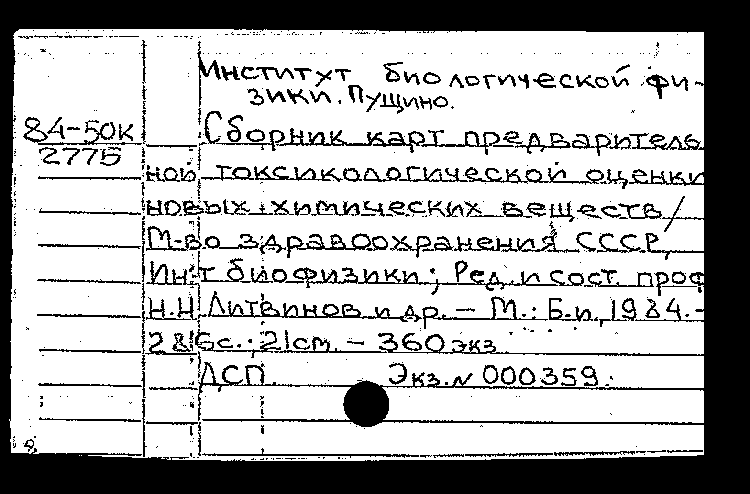 Институт биологической фи-
зики. Пущино.
84-50к
2775
Сборник карт предваритель
ной токсикологической оценки
новых химических веществ/
М-во здравоохранения СССР,
Ин-т биофизики; Ред. и сост. проф
Н.Н Литвинов и др. – М.: Б.и, 1984.-
286с.; 21cm. – 360экз
ДСП. Экз.N 000359.